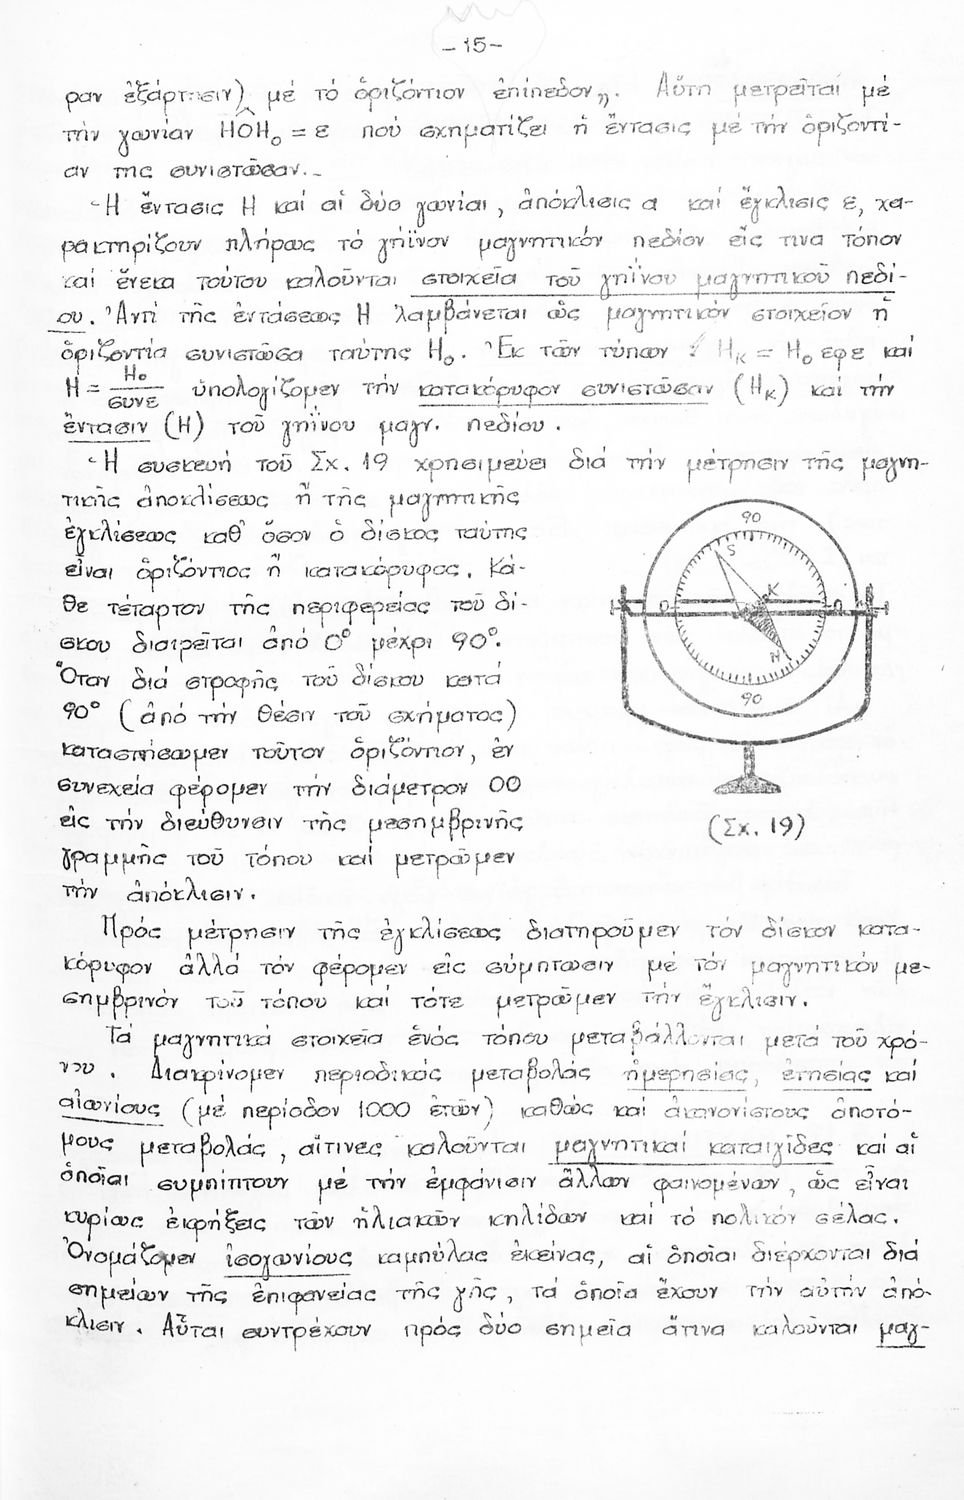 -15-
ραν ἐξάρτησιν) μέ τό ὁριζόντιον ἐπίπεδον„. Αὕτη μετρεῖται μέ
τήν γωνίαν HÔH₀ = ε πού σχηματίζει ἡ ἔντασις μέ τήν ὁριζοντί-
αν της συνιστῶσαν.-
Ἡ ἔντασις Η καί αἱ δύο γωνίαι, ἀπόκλισις α καί ἔγκλισις ε, χα-
ρακτηρίζουν πλήρως τό γήϊνον μαγνητικόν πεδίον εἰς τινα τόπον
καί ἕνεκα τούτου καλοῦνται στοιχεῖα τοῦ γηΐνου μαγνητικοῦ πεδί-
ου. Ἀντί τῆς ἐντάσεως Η λαμβάνεται ὡς μαγνητικόν στοιχεῖον ἡ
ὁριζοντία συνιστῶσα ταύτης H₀. Ἐκ τῶν τύπων : Hκ = H₀ εφε καί
H = H₀/συνε ὑπολογίζομεν τήν κατακόρυφον συνιστῶσαν (Hκ) καί τήν
ἔντασιν (H) τοῦ γηΐνου μαγν. πεδίου.
Ἡ συσκευή τοῦ Σχ. 19 χρησιμεύει διά τήν μέτρησιν τῆς μαγνη-
τικῆς ἀποκλίσεως ἤ τῆς μαγνητικῆς
ἐγκλίσεως καθ' ὅσον ὁ δίσκος ταύτης
εἶναι ὁριζόντιος ἤ κατακόρυφος. Κά-
θε τέταρτον τῆς περιφερείας τοῦ δί-
σκου διαιρεῖται ἀπό 0° μέχρι 90°.
Ὅταν διά στροφῆς τοῦ δίσκου κατά
90° (ἀπό τήν θέσιν τοῦ σχήματος)
καταστήσωμεν τοῦτον ὁριζόντιον, ἐν
συνεχείᾳ φέρομεν τήν διάμετρον 00
εἰς τήν διεύθυνσιν τῆς μεσημβρινῆς
γραμμῆς τοῦ τόπου καί μετρῶμεν
τήν ἀπόκλισιν.
90
S
K
0
0
N
90
(Σχ. 19)
Πρός μέτρησιν τῆς ἐγκλίσεως διατηροῦμεν τόν δίσκον κατα-
κόρυφον ἀλλά τόν φέρομεν εἰς σύμπτωσιν μέ τόν μαγνητικόν με-
σημβρινόν τοῦ τόπου καί τότε μετρῶμεν τήν ἔγκλισιν.
Τά μαγνητικά στοιχεῖα ἑνός τόπου μεταβάλλονται μετά τοῦ χρό-
νου. Διακρίνομεν περιοδικάς μεταβολάς ἡμερησίας, ἐτησίας καί
αἰωνίους (μέ περίοδον 1000 ἐτῶν) καθώς καί ἀκανονίστους ἀποτό-
μους μεταβολάς, αἵτινες καλοῦνται μαγνητικαί καταιγίδες καί αἱ
ὁποῖαι συμπίπτουν μέ τήν ἐμφάνισιν ἄλλων φαινομένων, ὡς εἶναι
κυρίως ἐκρήξεις τῶν ἡλιακῶν κηλίδων καί τό πολικόν σέλας.
Ὀνομάζομεν ἰσογωνίους καμπύλας ἐκείνας, αἱ ὁποῖαι διέρχονται διά
σημείων τῆς ἐπιφανείας τῆς γῆς, τά ὁποῖα ἔχουν τήν αὐτήν ἀπό-
κλισιν. Αὗται συντρέχουν πρός δύο σημεῖα ἅτινα καλοῦνται μαγ-